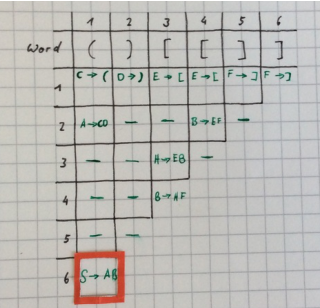 1 2 3 4 5 6
Word ( ) [ [ ] ]
1 C → ( D → ) E → [ E → [ F → ] F → ]
2 A → CD – – B → EF –
3 – – H → EB –
4 – – B → HF
5 – –
6 S → AB